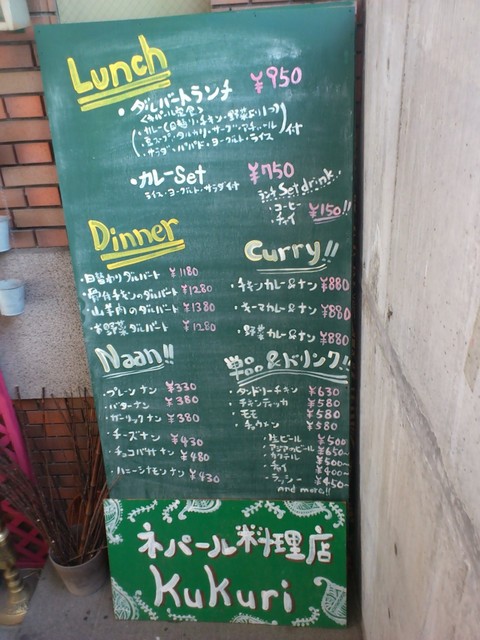 Lunch
・ダルバートランチ ¥950
<ネパール定食>
カレー(日替り・チキン・野菜より1つ)
豆スープ・タルカリ・サーグ・アチャール
サラダ・パパド・ヨーグルト・ライス
付
・カレーSet ¥750
ライス・ヨーグルト・サラダ付
ランチSet drink
・コーヒー
・チャイ
¥150!!
Dinner
・日替わりダルバート ¥1180
・骨付チキンのダルバート ¥1280
・山羊肉のダルバート ¥1380
・野菜ダルバート ¥1280
Curry!!
・チキンカレー&ナン ¥880
・キーマカレー&ナン ¥880
・野菜カレー&ナン ¥880
Naan!!
・プレーンナン ¥330
・バターナン ¥380
・ガーリックナン ¥380
・チーズナン ¥430
・チョコバナナナン ¥480
・ハニーシナモンナン ¥430
単品&ドリンク!!
・タンドリーチキン ¥630
・チキンティッカ ¥580
・モモ ¥580
・チョウメン ¥580
・生ビール ¥500
・アジアのビール ¥650~
・カクテル ¥500~
・チャイ ¥400~
・ラッシー ¥450~
and more!!
ネパール料理店
Kukuri